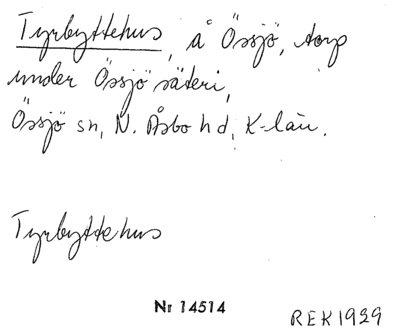 Tyrbyttehus, å Össjö, torp
under Össjö säteri,
Össjö sn, N. Åsbo hd, K-län.
Tyrbyttehus
Nr 14514
REK1929